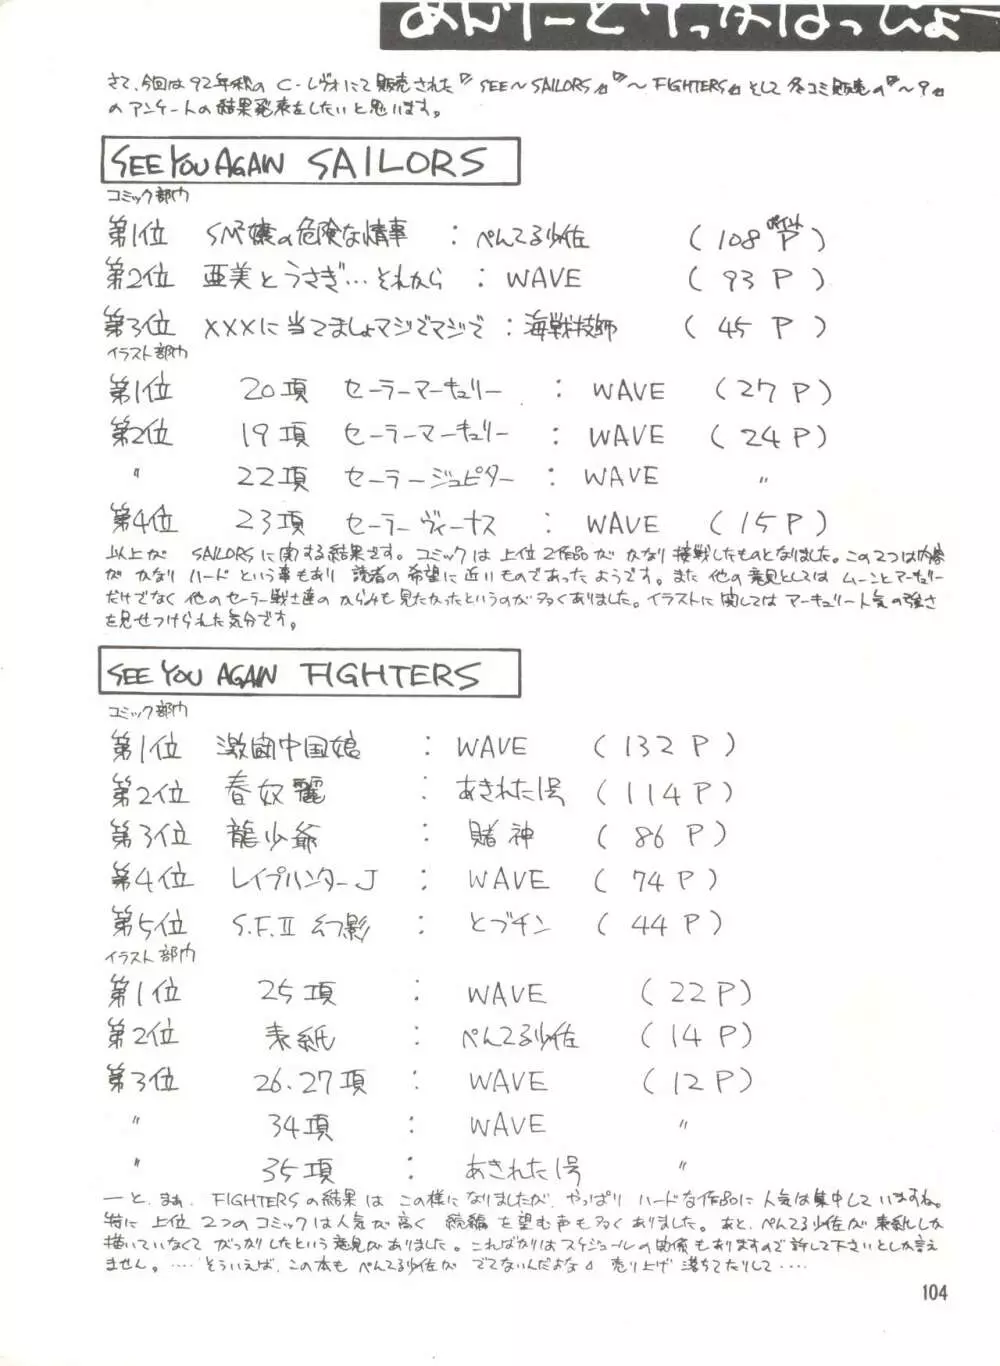 あんけーとけっかはっぴょー
さて、今回は92年秋の C・レヴォにて販売された『SEE～SAILORS』『～FIGHTERS』そして冬コミ販売の『～9』
のアンケートの結果発表をしたいと思います。
SEE YOU AGAIN SAILORS
コミック部門
第1位 SM嬢の危険な情事 : ぺんてる少佐 (108ポイントP)
第2位 亜美とうさぎ…それから : WAVE (93P)
第3位 XXXに当てましょマジでマジで : 海戦技師 (45P)
イラスト部門
第1位 20項 セーラーマーキュリー : WAVE (27P)
第2位 19項 セーラーマーキュリー : WAVE (24P)
〃 22項 セーラージュピター : WAVE 〃
第4位 23項 セーラーヴィーナス : WAVE (15P)
以上が SAILORSに関する結果です。コミックは上位2作品が かなり接戦したものとなりました。この2つは内容
が かなりハードという事もあり 読者の希望に近いものであったようです。また 他の意見としては ムーンとマーキュリー
だけでなく 他のセーラー戦士達の からみも見たかったというのが多くありました。イラストに関しては マーキュリー人気の強さ
を見せつけられた気分です。
SEE YOU AGAIN FIGHTERS
コミック部門
第1位 激闘中国娘 : WAVE (132P)
第2位 春奴麗 : あきれた1号 (114P)
第3位 龍少爺 : 賭神 (86P)
第4位 レイプハンターJ : WAVE (74P)
第5位 S.F.Ⅱ幻影 : とブチン (44P)
イラスト部門
第1位 25項 : WAVE (22P)
第2位 表紙 : ぺんてる少佐 (14P)
第3位 26.27項 : WAVE (12P)
〃 34項 : WAVE 〃
〃 35項 : あきれた1号 〃
ーと、まぁ、FIGHTERSの結果は この様になりましたが、やっぱり ハードな作品に 人気は集中して いますね。
特に 上位2つのコミックは人気が高く 続編を望む声も多くありました。あと、ぺんてる少佐が 表紙しか
描いていなくて がっかりしたという意見がありました。こればかりは スケジュールの関係もありますので許して下さいとしか言え
ません。‥‥そういえば、この本も ぺんてる少佐が でてないんだよな。売り上げ 落ちてたりして‥‥
104